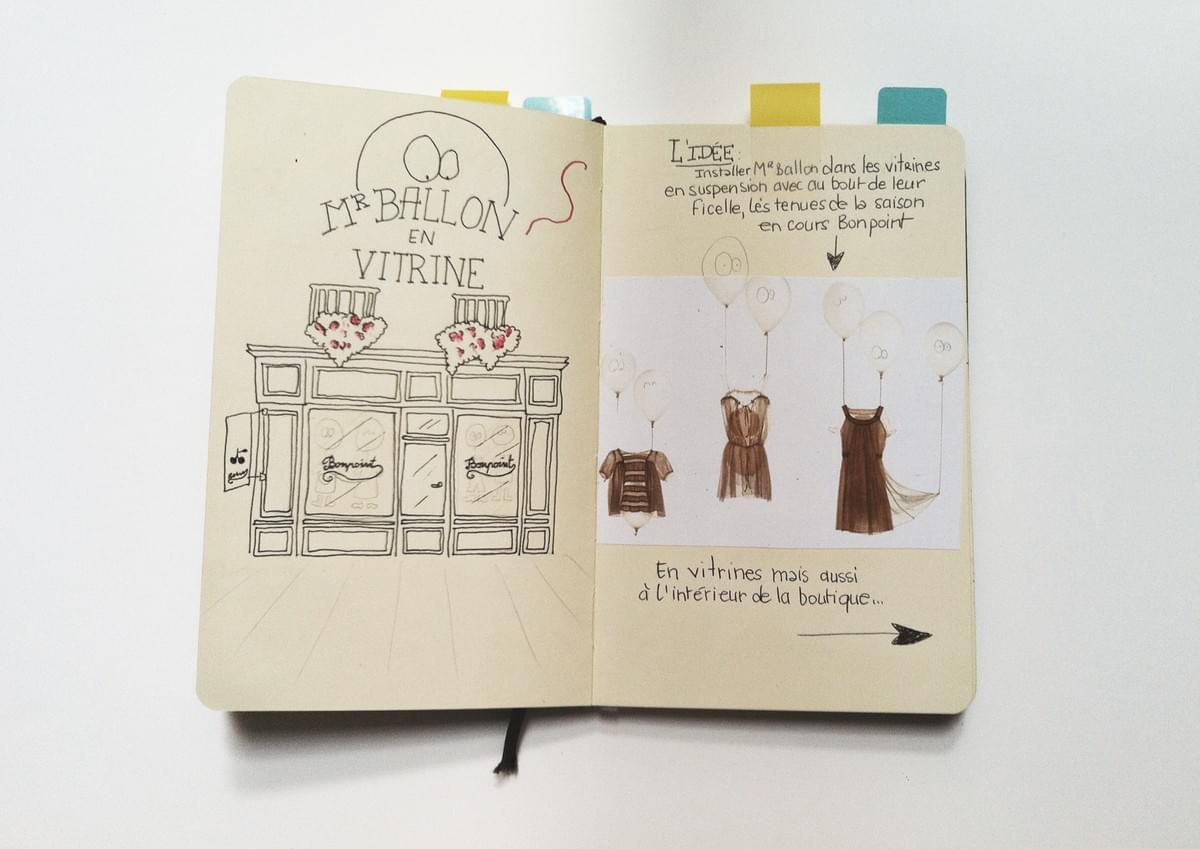 MR BALLON
EN
VITRINE
Bonpoint
Bonpoint
L'IDÉE:
Installer MR Ballon dans les vitrines
en suspension avec au bout de leur
ficelle, les tenues de la saison
en cours Bonpoint
En vitrines mais aussi
à l'intérieur de la boutique...